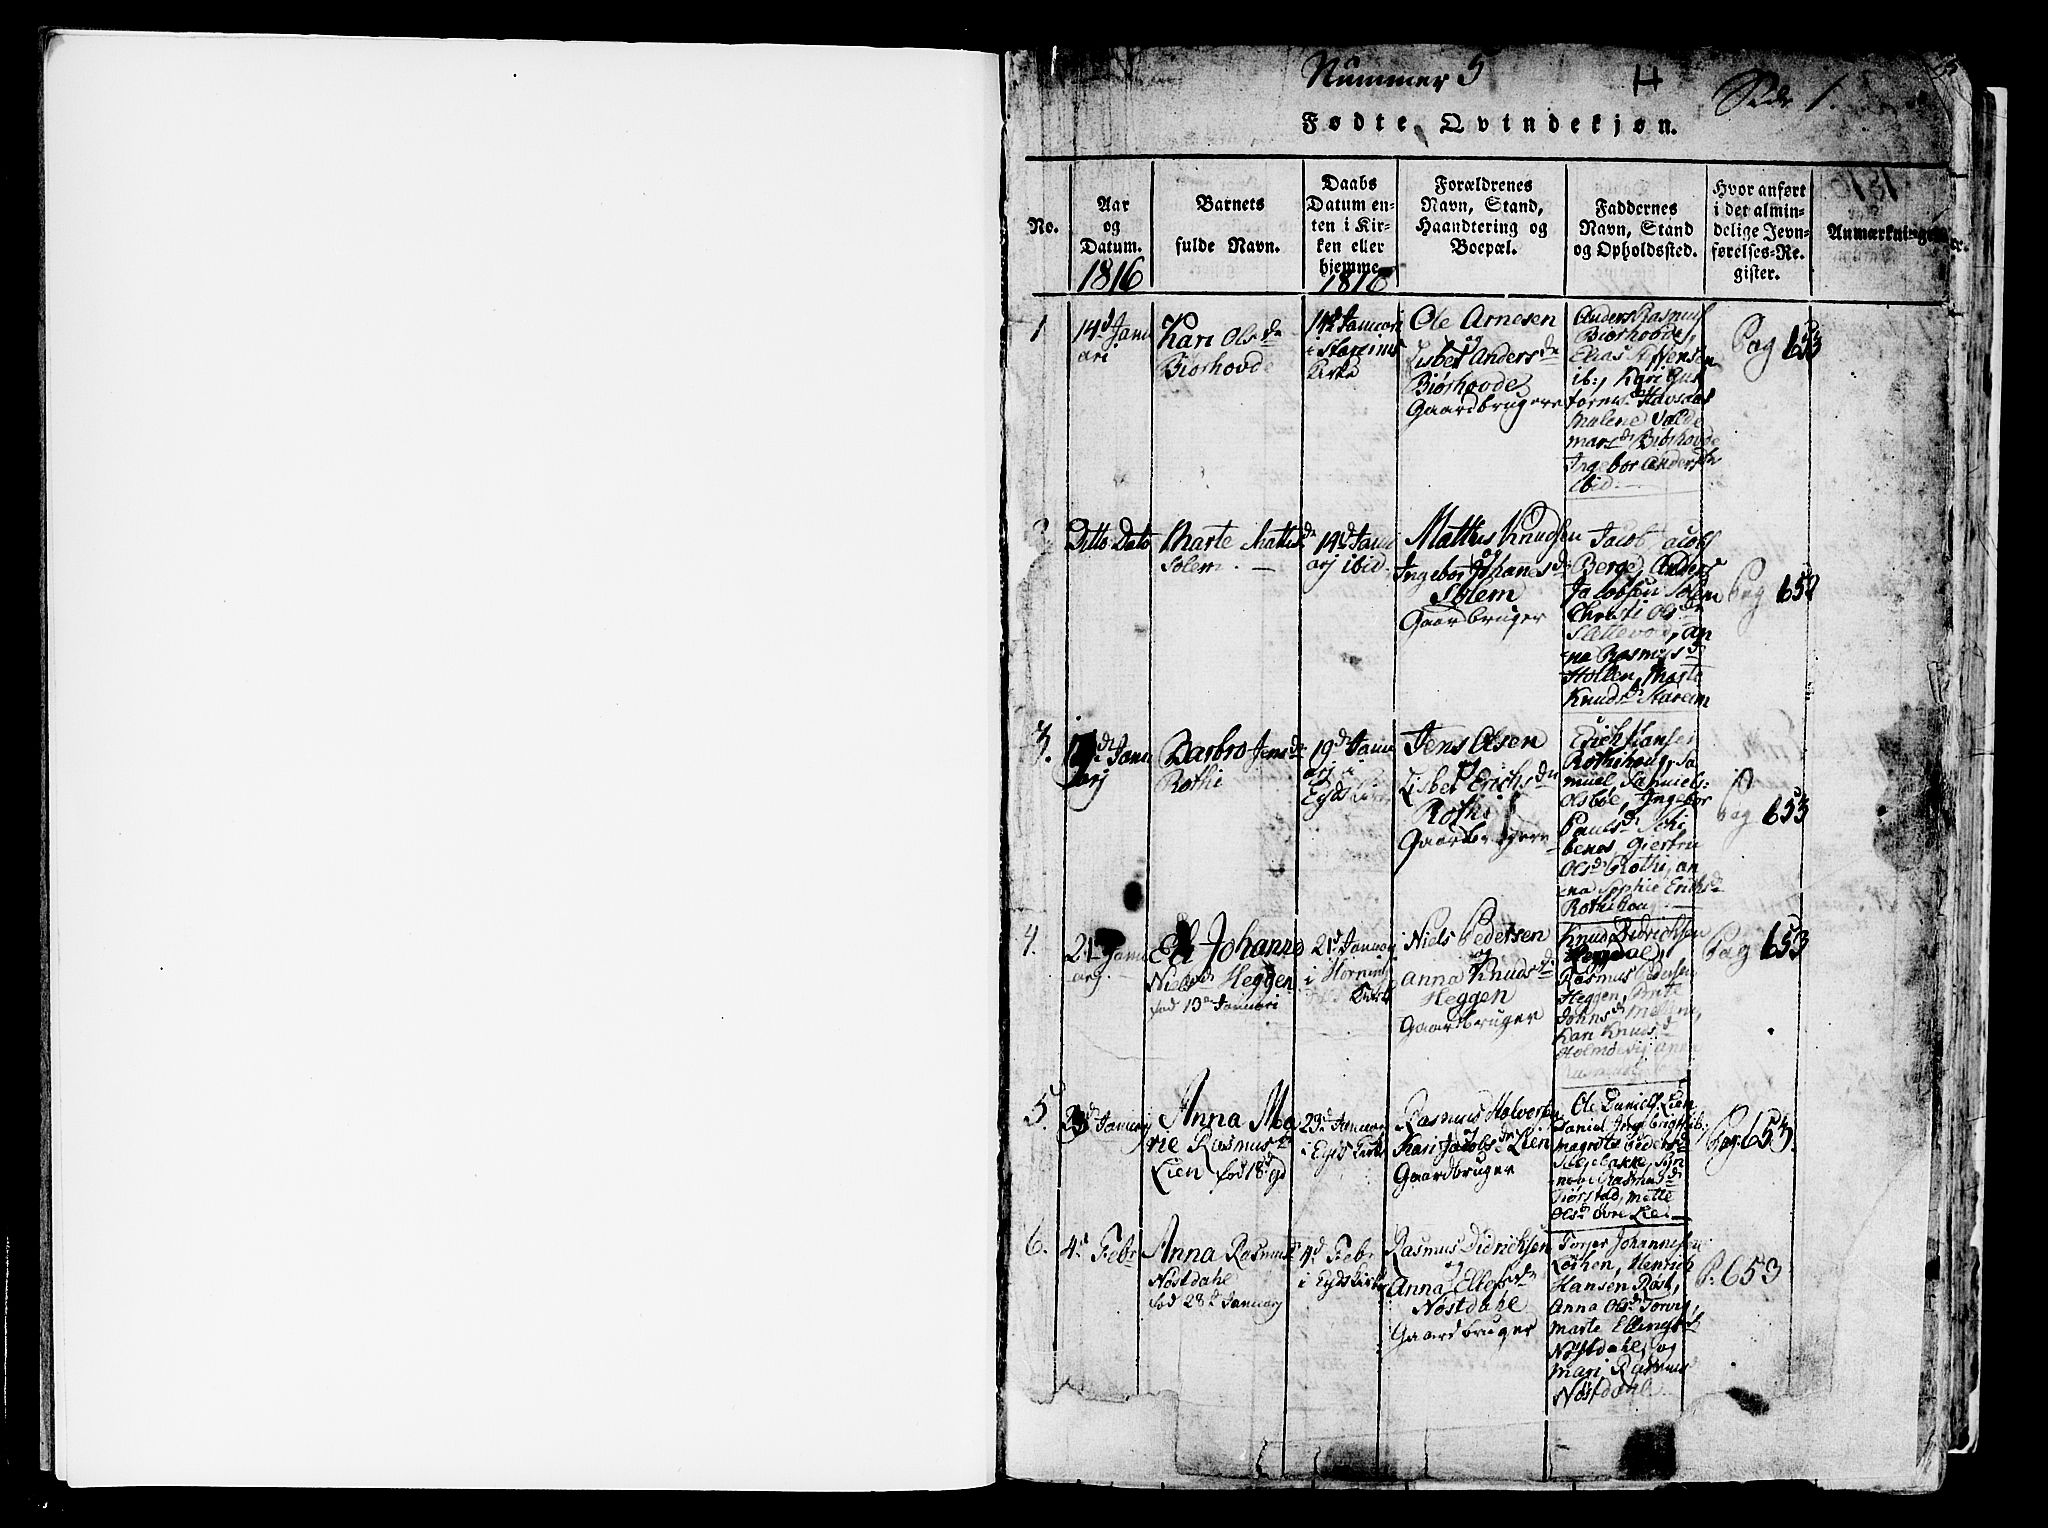 Nummer 5
Side 1.
Fødte Qvindekjøn.
No.
Aar
og
Datum.
1816
Barnets
fulde Navn.
Daabs
Datum en-
ten i Kir-
ken eller
hjemme
1816
Forældrenes
Navn, Stand,
Haandtering og
Boepæl.
Faddernes
Navn, Stand
og Opholdssted.
Hvor anført
i det almin-
delige Jevn-
førelses-Re-
gister.
Anmærkninger
1
14d Janu
ari
Kari Olsdr
Biørhovde
14d Januari
i Stareims
Kirke
Ole Arnesen
og
Lisbet Andersdr
Biørhovde
Gaardbrugere
Anders Rasmus
Biørhovde,
Elias
ib:, Kari Gut
torms.
Malene Valde
marsd Biørhovde
Ingebor Andersdr
ibid.
Pag 653
2
Ditto Dato
Marte Mattisdr
Solem.
14d Janu
arj ibid.
Mattis Knudsen
og
Ingebor Johanesdr
Solem
Gaardbruger
Jacob Jacobs
Berge, Anders
Jacobsen Solem
Christi Olsdr
an
na Rasmusd
Hollen, Marte
Knudsd Stareim
Pag 652
3.
Janu
arj
Barbro Jensdr
Rothi
19d Janu
arj i
Eyds Kirke
Jens Olsen
og
Lisbet Erichsdr
Rothi
Gaardbrugere
Erich Hansen
Rothihoug, Sa
muel Samuels:
Olsbøe, Ingebor
Paulsd
Giertru
Olsd Rothi, an
na Sophie Eriksd
Pag 653
4.
21d Janu
arj.
Eli Johanna
Nielsd Heggen
fød 13de Januari
21d Januarj
i Hornindals Kirke
Niels Pedersen
og
Anna Knudsd
Heggen
Gaardbruger
Knud Didrichsen
Rasmus Pedersen
Heggen, Brite
Johnsd
Kari Knudsd
Holmøevig anna
Pag 653
5
23d Januarj
Anna Ma
rie Rasmusdr
Lien fød 18d
23d Januarj
i Eyds Kirke
Rasmus Halvorsen
og
Kari Jacobsdr Lien
Gaardbruger
Ole Daniels. Lien
Daniel Ingebrigts ib:
Magrete Pedersd
Silgebakke, Syn
nove Rasmusd
Mette
Olsd øvre Lie.
Pag. 653.
6.
4d Febr
Anna Rasmusd
Nøstdahl
fød 28d Januarj
4d Febr
i Eyds Kirke
Rasmus Didrichsen
og
Anna Ellefsdr
Nøstdahl
Gaardbruger
Torger Johannesen
Løthen, Henrich
Hansen Røst,
Anna Olsd Torvig,
Marte Ellingsd
Nøstdahl, og
Mari Rasmus
Nøstdahl.
P. 653